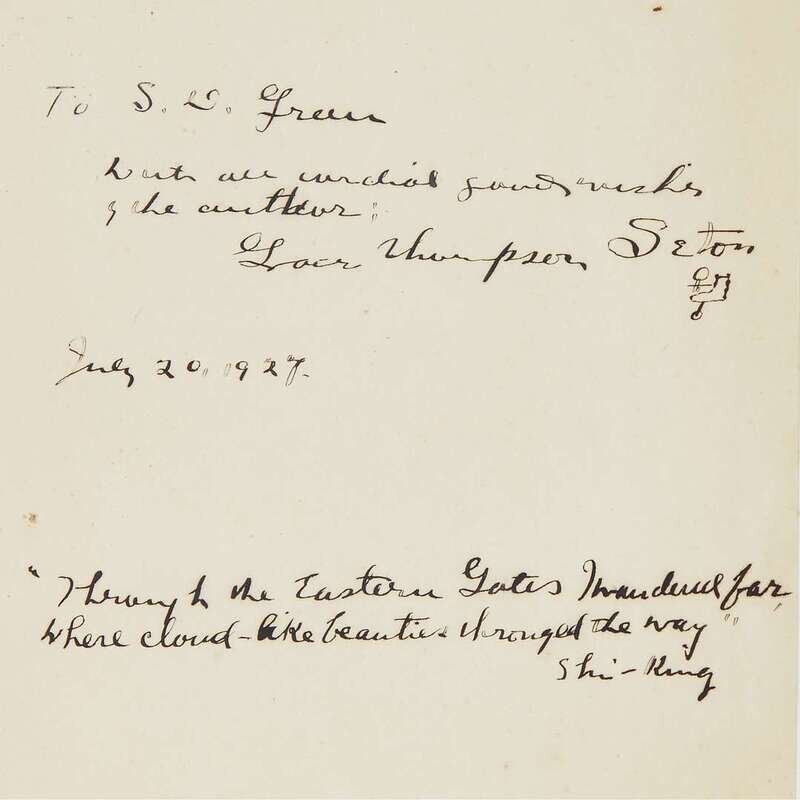 To S. D. Green
With all cordial good wishes
of the author:
Grace Thompson Seton
July 20, 1927.
"Through the Eastern Gates I wandered far,
Where cloud-like beauties thronged the way"
Shi-King